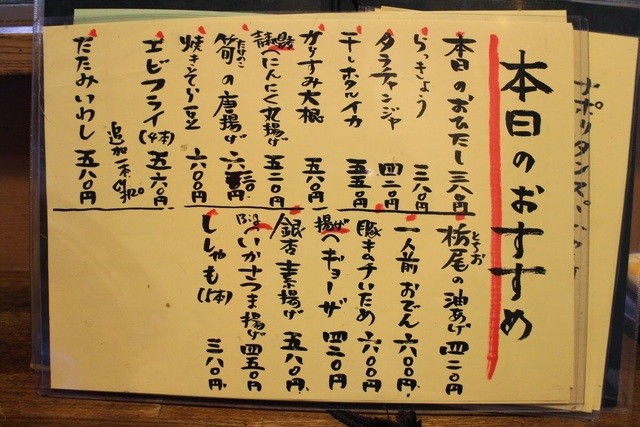 本日のおすすめ
本日のおひたし 三八〇円
らっきょう 三八〇円
タラチャンジャ 四二〇円
干しホタルイカ 五五〇円
からすみ大根 五八〇円
青森県産へにんにく丸揚げ 五二〇円
たけのこ
筍の唐揚げ 六三〇円
焼きそら豆 六〇〇円
エビフライ(4本) 五六〇円
追加一本
たたみいわし 五八〇円
とちお
栃尾の油あげ 四二〇円
一人前おでん 六〇〇円
豚キムチいため 六〇〇円
揚げギョーザ 四三〇円
銀杏素揚げ 五八〇円
いかさつま揚げ 四五〇円
ししゃも(5本) 三八〇円
ナポリタンスパ